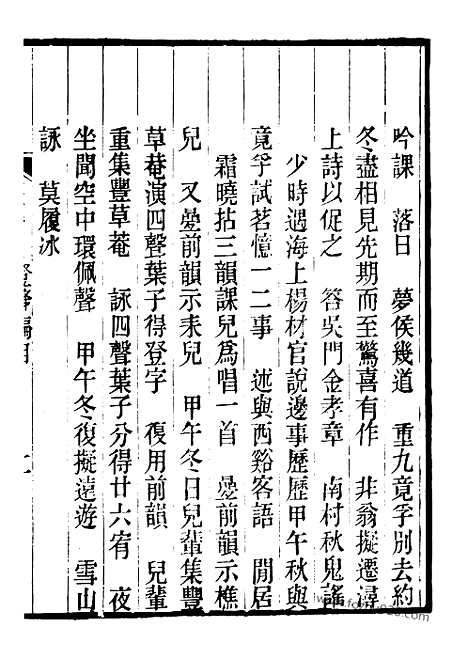 吟課　落日　夢侯幾道　重九竟乎別去約
冬盡相見先期而至驚喜有作　非翁擬遷潯
上詩以促之　答吳門金孝章　南村秋鬼謠
少時遇海上楊材官說邊事歷歷甲午秋與
竟乎試茗憶一二事　述與西谿客語　閒居
霜曉拈三韻課兒爲唱一首　疊前韻示樵
兒　又疊前韻示耒兒　甲午冬日兒輩集豐
草菴演四聲葉子得登字　復用前韻　兒輩
重集豐草菴　詠四聲葉子分得廿六宥　夜
坐聞空中環佩聲　甲午冬復擬遠遊　雪山
詠　莫履冰